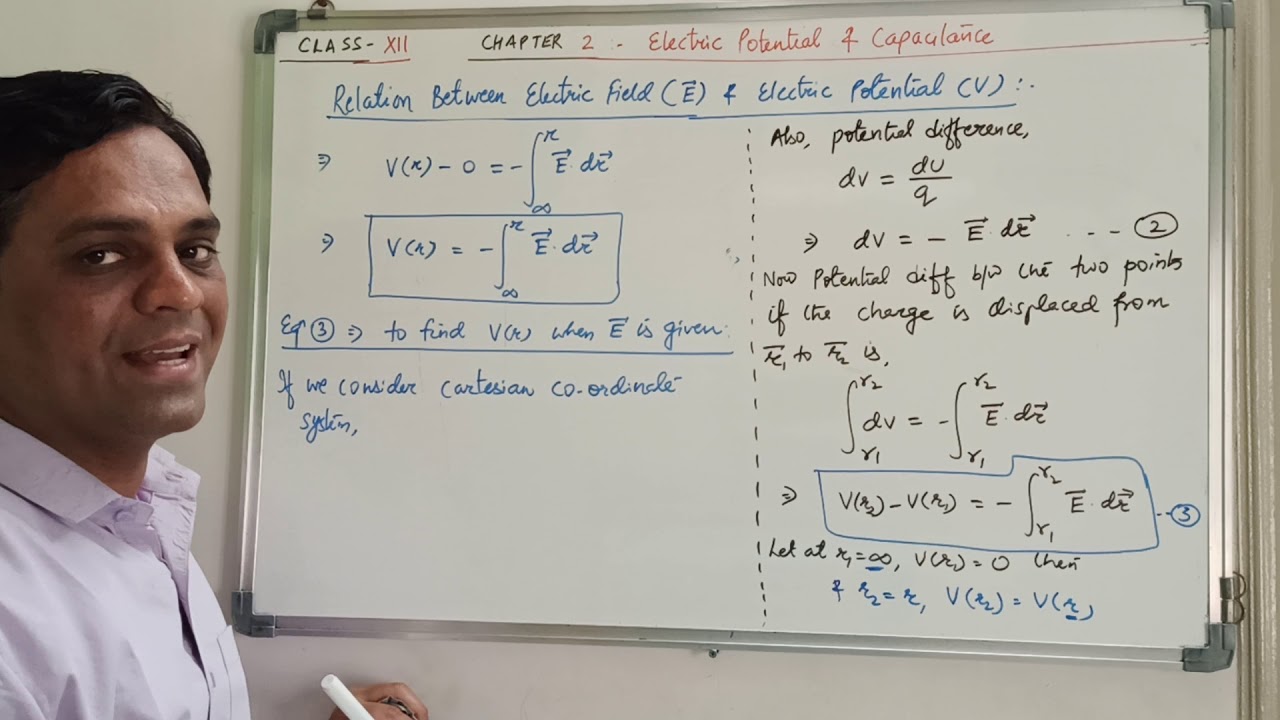 CLASS- XII CHAPTER 2 :- Electric Potential & Capacitance
Relation Between Electric Field (E⃗) & Electric Potential (V) :-
⇒ V(r) - 0 = -∫_∞^r E⃗. dr⃗
⇒ V(r) = -∫_∞^r E⃗. dr⃗
Eqⁿ ③ ⇒ to find V(r) when E⃗ is given.
If we consider Cartesian co-ordinate
system,
Also, potential difference,
dv = dU/q
⇒ dv = - E⃗. dr⃗ ---- ②
Now Potential diff b/w the two points
if the charge is displaced from
r⃗₁ to r⃗₂ is,
∫_r₁^r₂ dv = -∫_r₁^r₂ E⃗. dr⃗
⇒ V(r₂) - V(r₁) = -∫_r₁^r₂ E⃗. dr⃗ --③
Let at r₁=∞, V(r₁)=0 then
& r₂=r, V(r₂) = V(r)